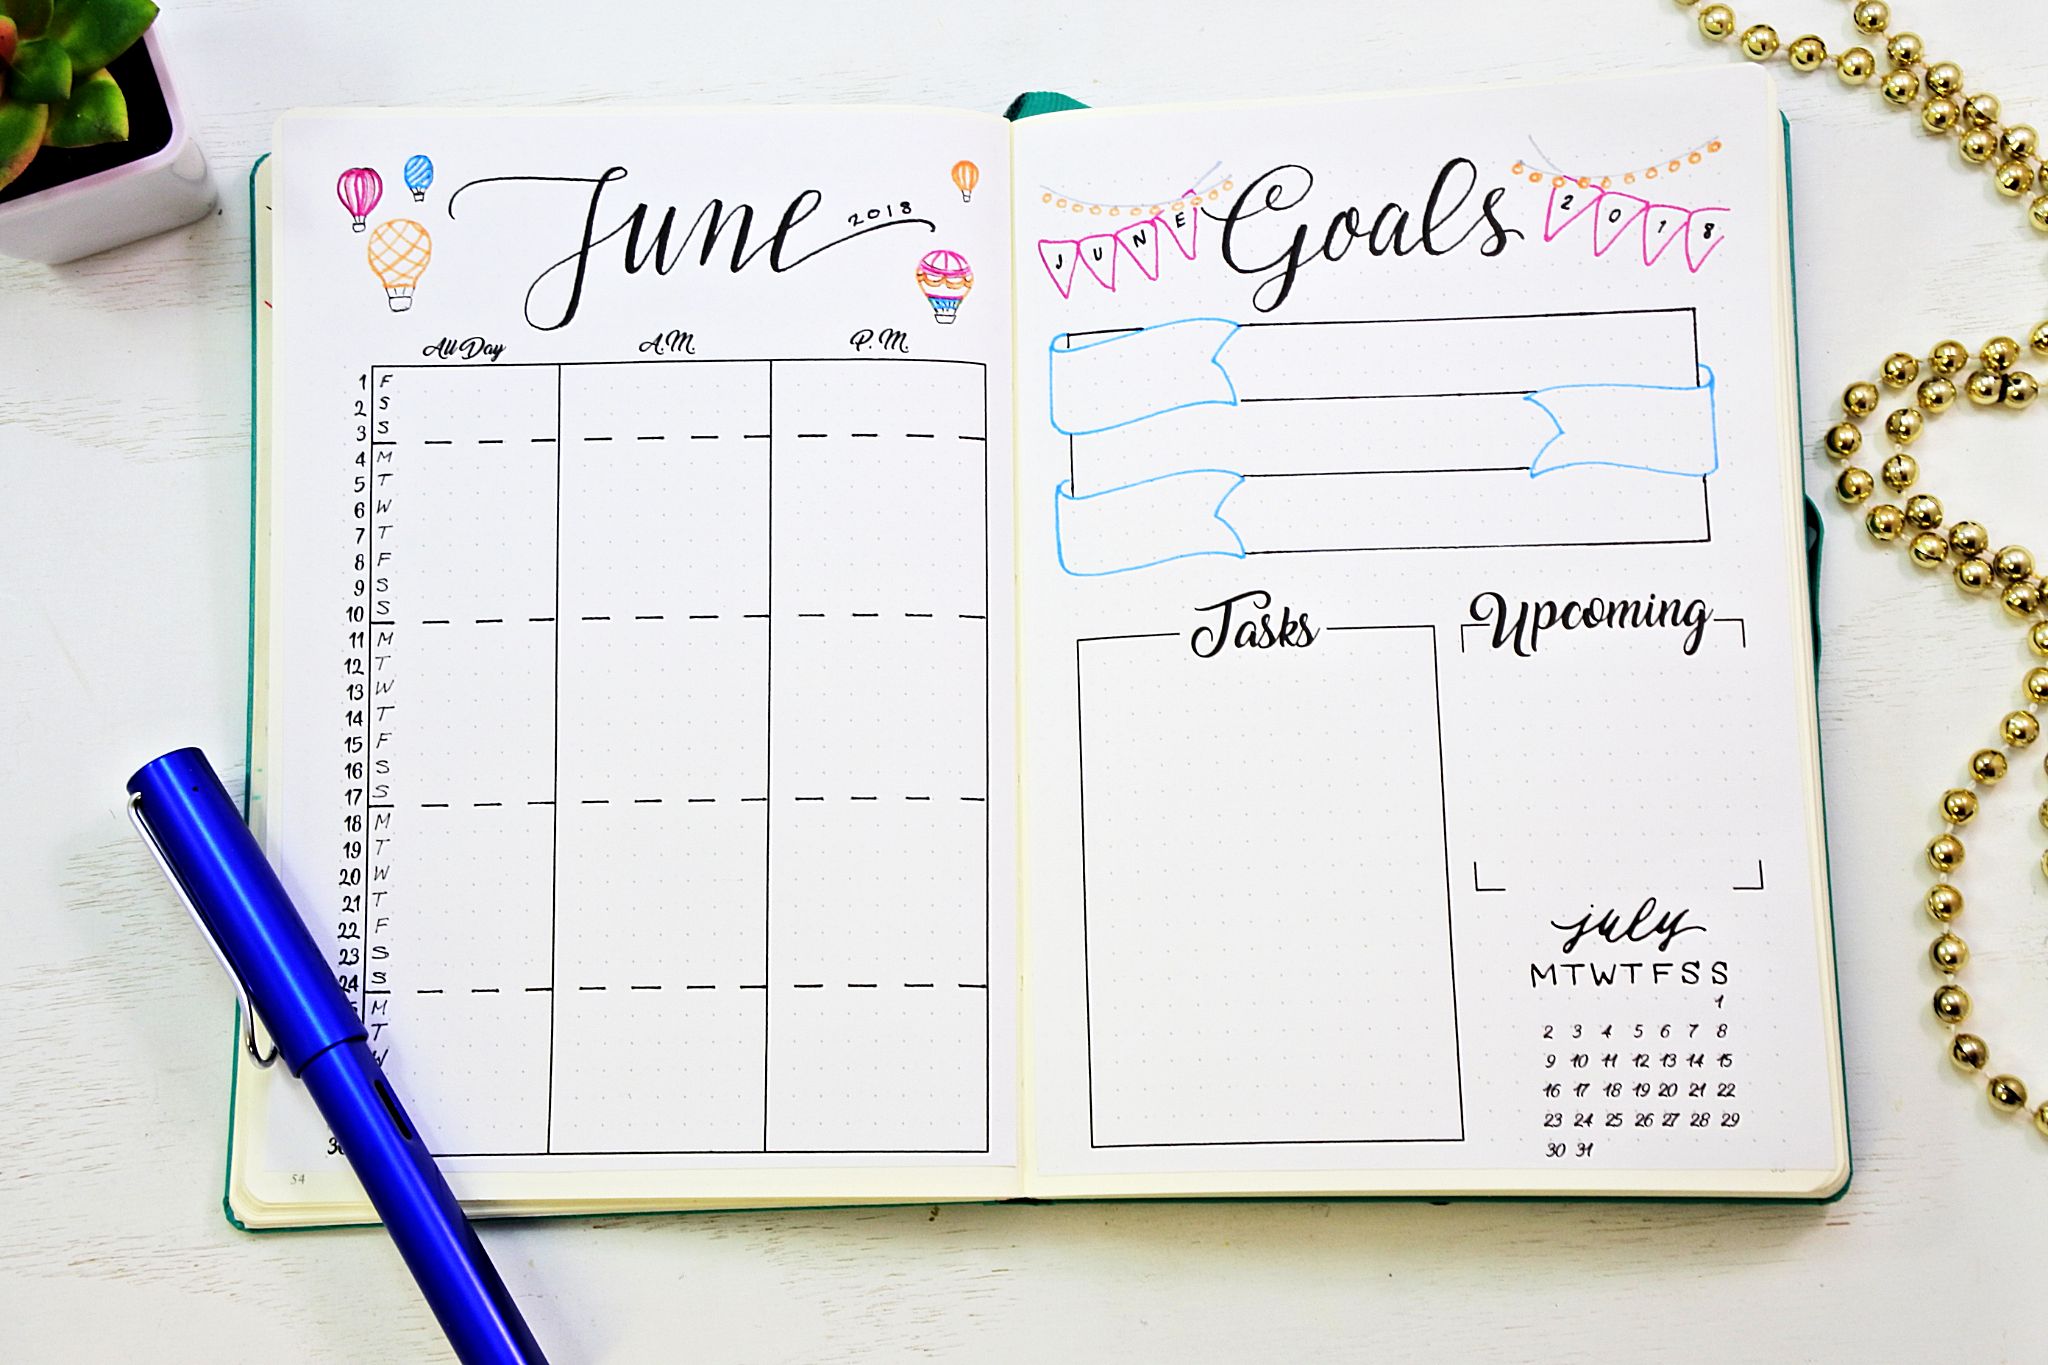 June 2018
All Day A.M. P.M.
1 F
2 S
3 S
4 M
5 T
6 W
7 T
8 F
9 S
10 S
11 M
12 T
13 W
14 T
15 F
16 S
17 S
18 M
19 T
20 W
21 T
22 F
23 S
24 S
M
T
W
54
JUNE Goals 2018
Tasks
Upcoming
july
M T W T F S S
1
2 3 4 5 6 7 8
9 10 11 12 13 14 15
16 17 18 19 20 21 22
23 24 25 26 27 28 29
30 31